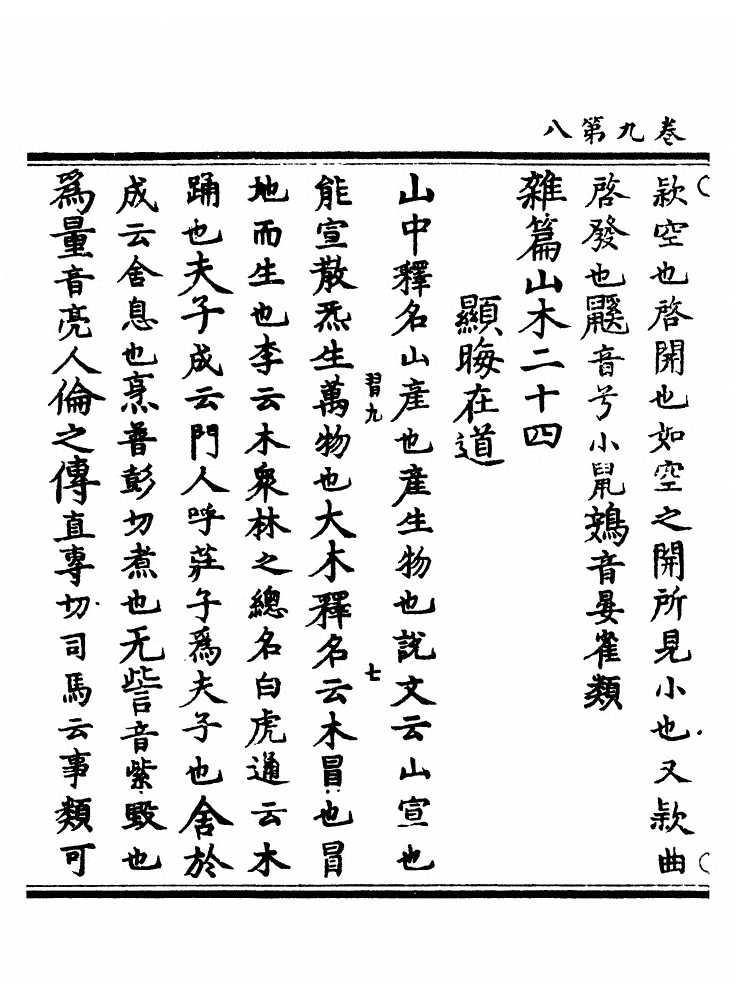 卷九第八
欵空也啓開也如空之開所見小也又欵曲
啓發也鼷音兮小鼠鴳音晏雀類
雜篇山木二十四
顯晦在道
山中釋名山産也産生物也說文云山宣也
習九
七
能宣散炁生萬物也大木釋名云木冒也冒
地而生也李云木衆林之總名白虎通云木
踊也夫子成云門人呼莊子爲夫子也舍於
成云舍息也烹普彭切煮也无訾音紫毀也
爲量音亮人倫之傳直專切司馬云事類可